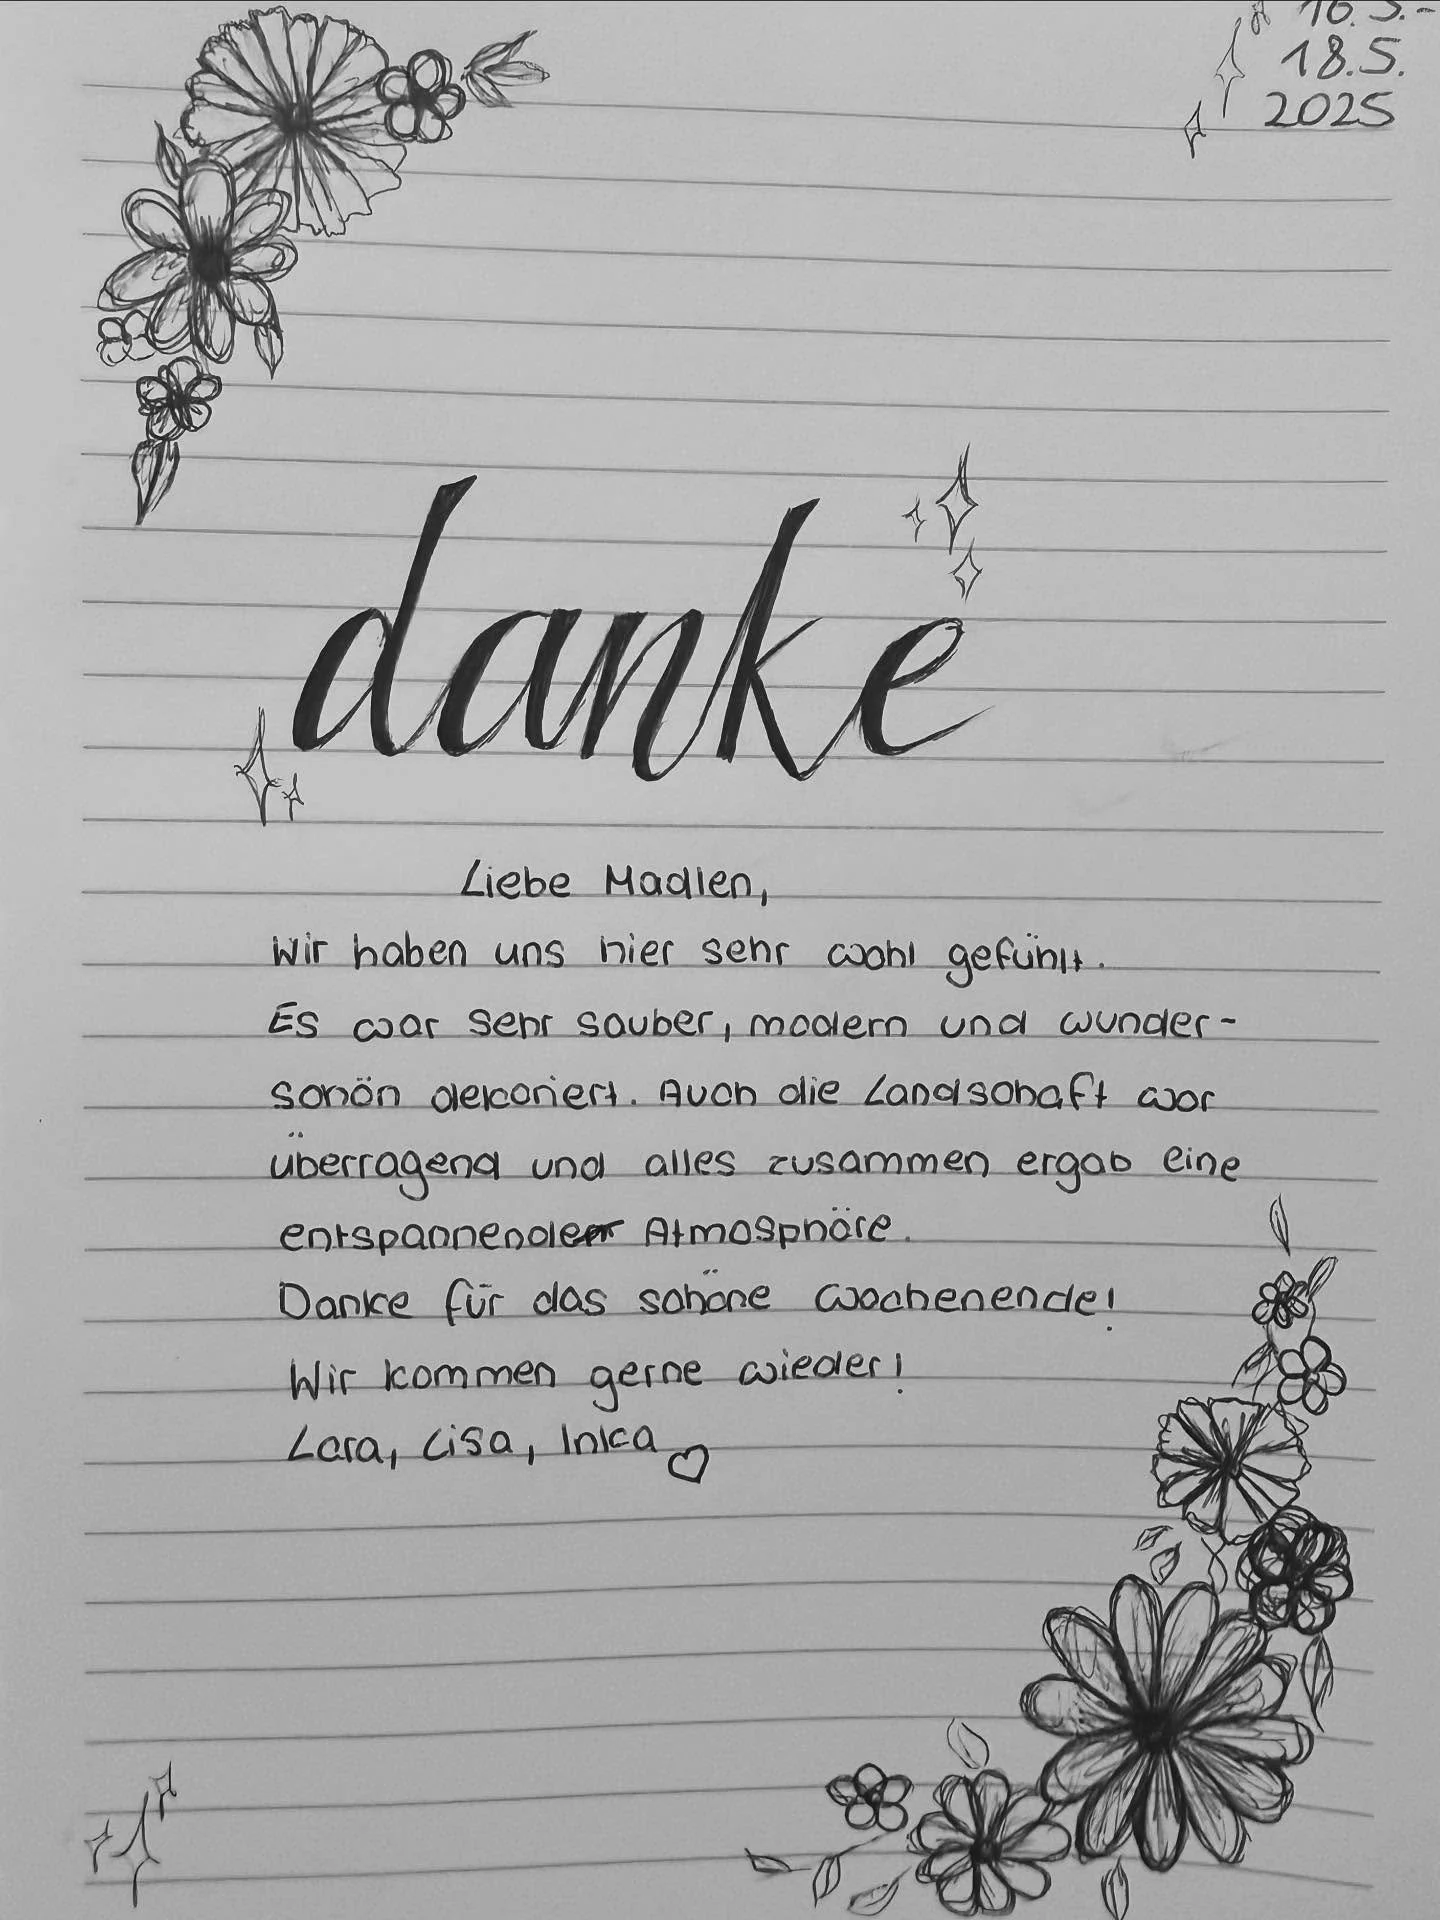 16.5.-
18.5.
2025
danke
Liebe Madlen,
Wir haben uns hier sehr wohl gefühlt.
Es war sehr sauber, modern und wunder-
schön dekoriert. Auch die Landschaft war
überragend und alles zusammen ergab eine
entspannende Atmosphäre.
Danke für das schöne Wochenende!
Wir kommen gerne wieder!
Lara, Lisa, Inka